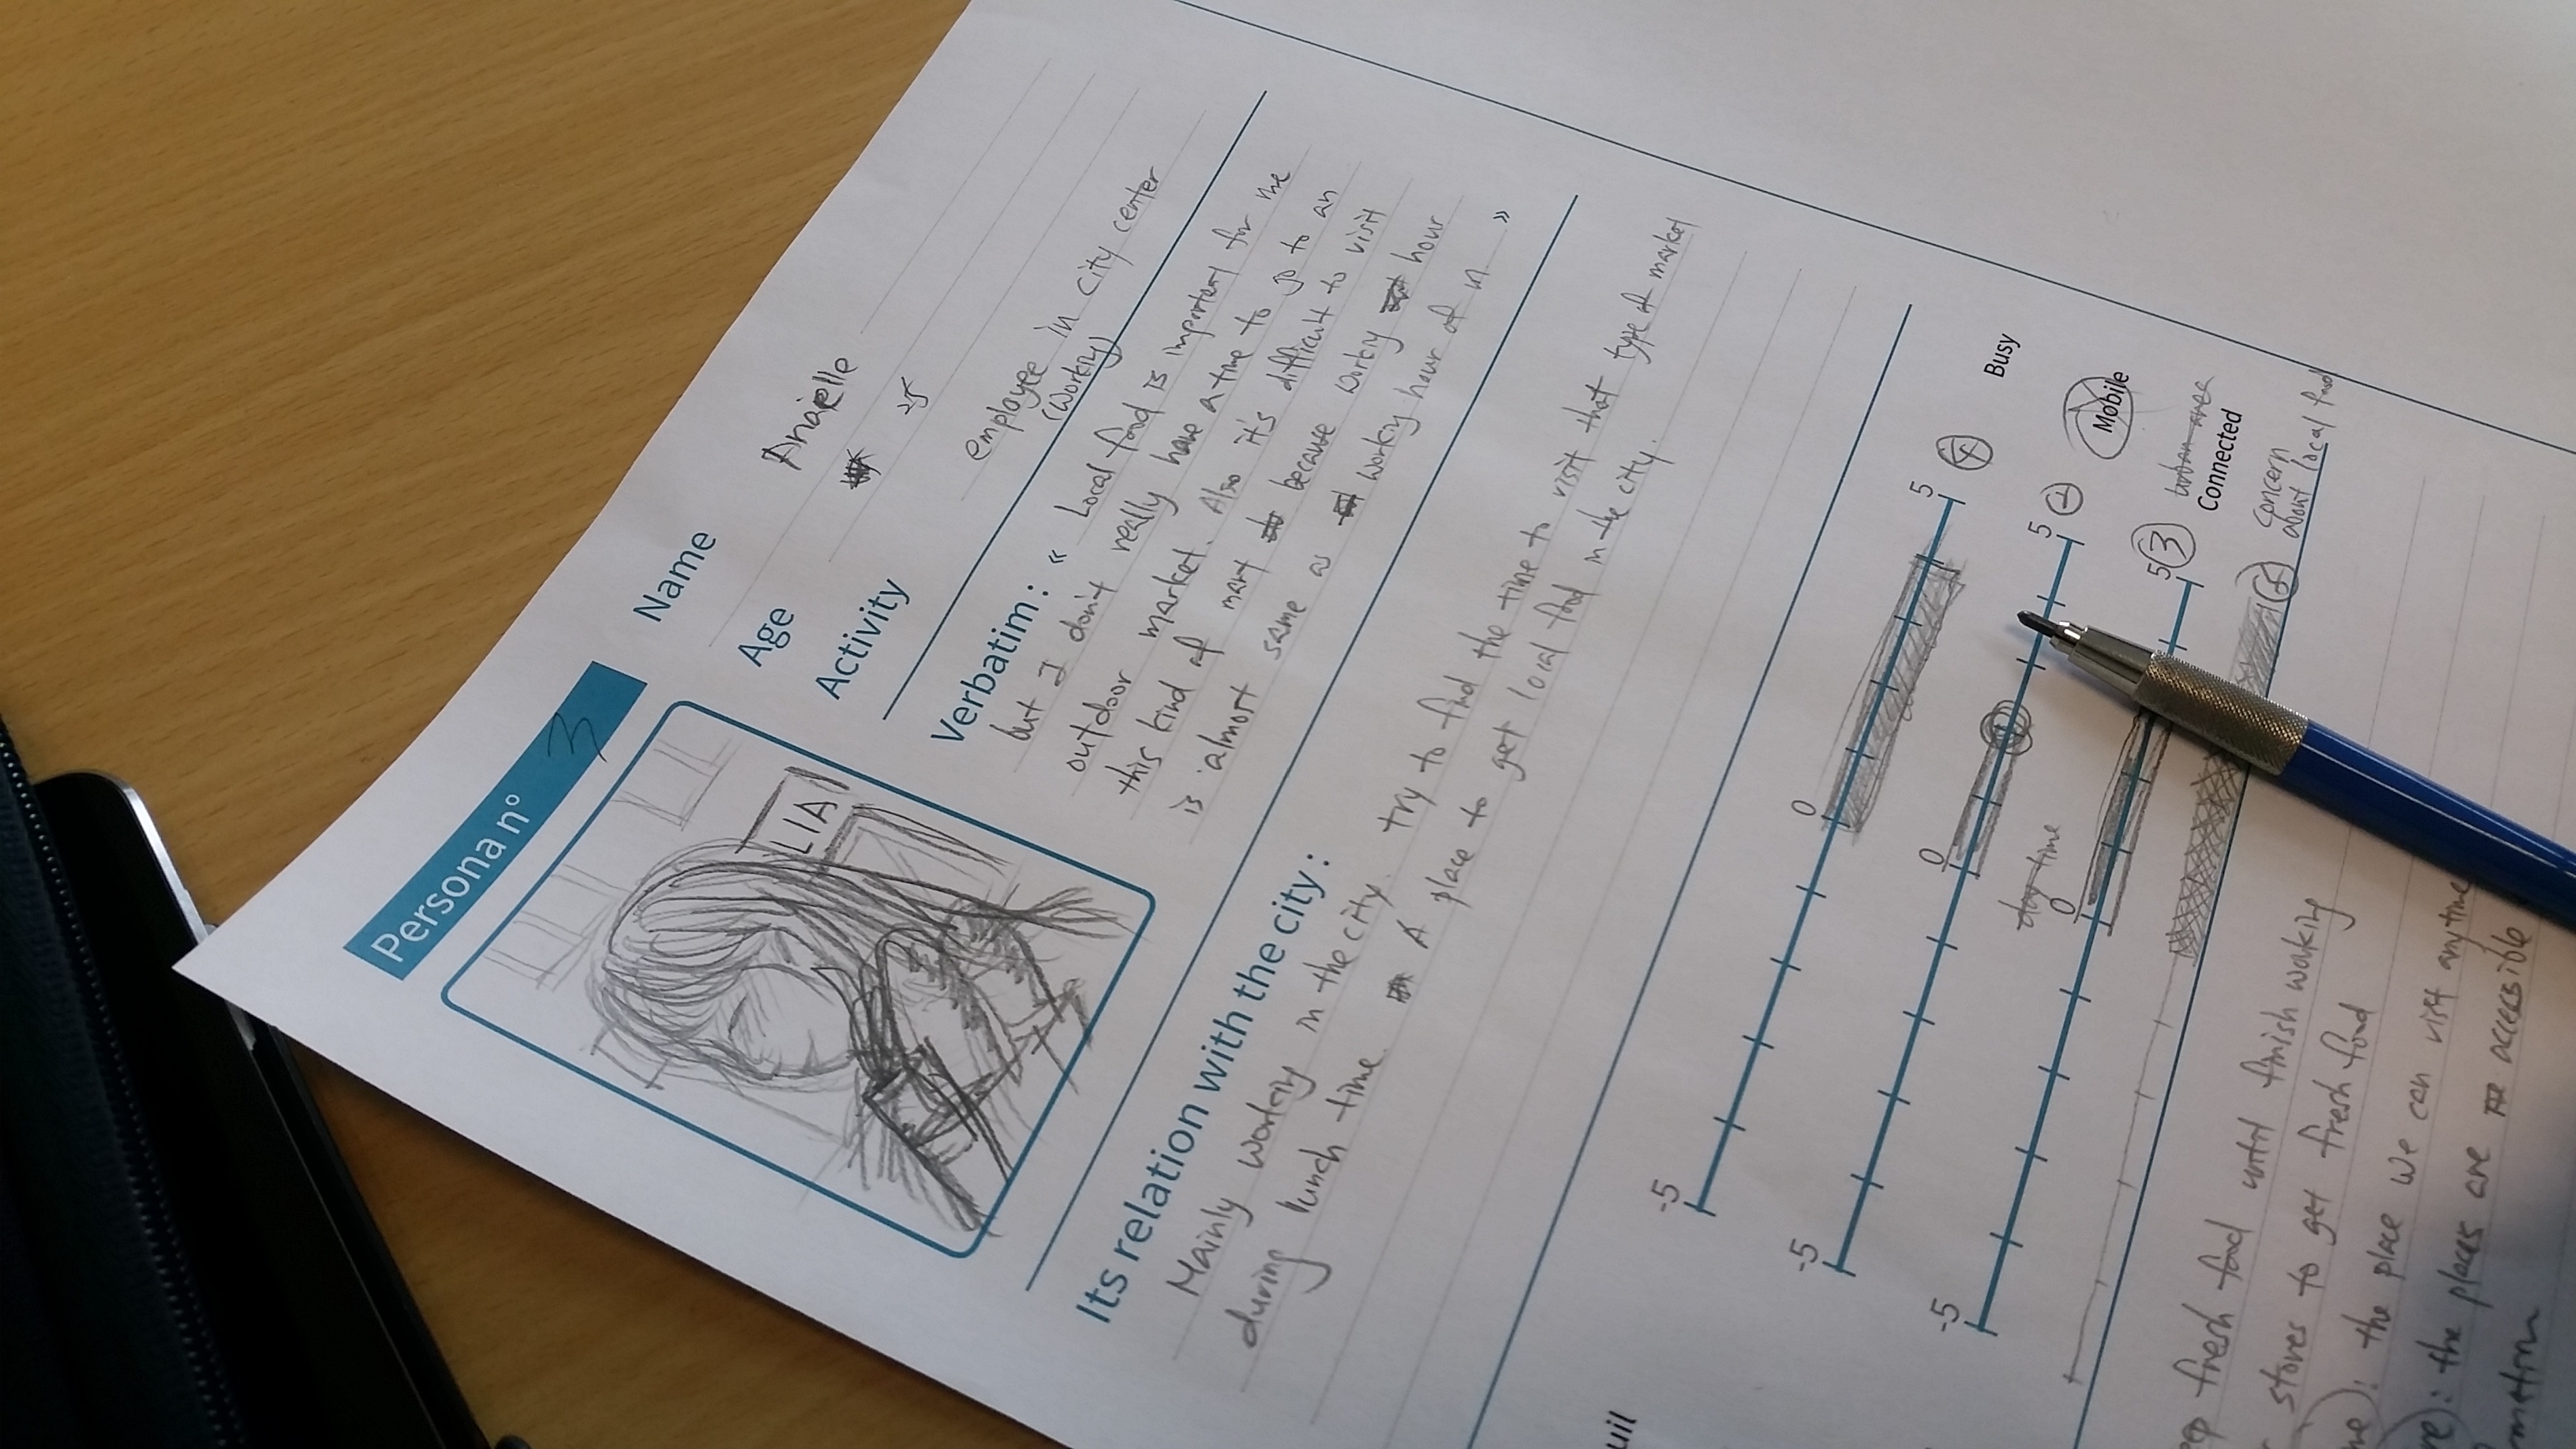 Persona n° 3
LIA
Name Anaelle
Age 25
Activity employee in city center
(working)
Verbatim : « Local food is important for me
but I don't really have a time to go to an
outdoor market. Also it's difficult to visit
this kind of many because working hour
is almost same as working hour of
»
Its relation with the city :
Mainly working in the city. try to find the time to visit that type of market
during lunch time. A place to get local food in the city.
-5 0 5 4 Busy
-5 0 5 Mobile
day time
urban area
-5 0 5 3 Connected
concern
about local food
fresh food until finish working
stores to get fresh food
: the place we can visit anytime
: the places are accessible